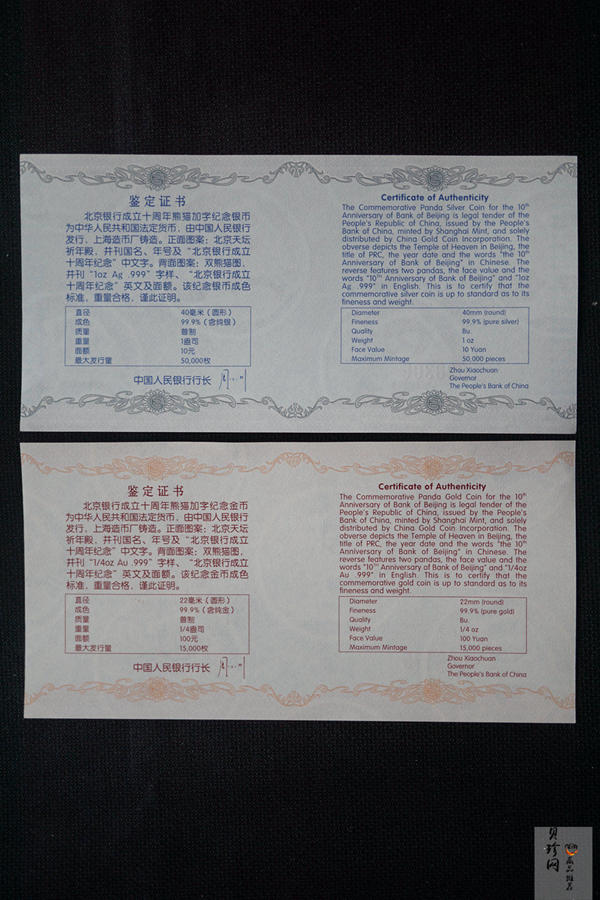 鉴定证书
北京银行成立十周年熊猫加字纪念银币
为中华人民共和国法定货币，由中国人民银行
发行，上海造币厂铸造。正面图案：北京天坛
祈年殿，并刊国名、年号及“北京银行成立
十周年纪念”中文字。背面图案：双熊猫图，
并刊“1oz Ag .999”字样、“北京银行成立
十周年纪念”英文及面额。该纪念银币成色
标准，重量合格，谨此证明。
直径 40毫米（圆形）
成色 99.9%（含纯银）
质量 普制
重量 1盎司
面额 10元
最大发行量 50,000枚
中国人民银行行长
Certificate of Authenticity
The Commemorative Panda Silver Coin for the 10th
Anniversary of Bank of Beijing is legal tender of the
People's Republic of China, issued by the People's
Bank of China, minted by Shanghai Mint, and solely
distributed by China Gold Coin Incorporation. The
obverse depicts the Temple of Heaven in Beijing, the
title of PRC, the year date and the words "the 10th
Anniversary of Bank of Beijing" in Chinese. The
reverse features two pandas, the face value and the
words "10th Anniversary of Bank of Beijing" and "1oz
Ag .999" in English. This is to certify that the
commemorative silver coin is up to standard as to its
fineness and weight.
Diameter 40mm (round)
Fineness 99.9% (pure silver)
Quality Bu.
Weight 1 oz
Face Value 10 Yuan
Maximum Mintage 50,000 pieces
Zhou Xiaochuan
Governor
The People's Bank of China
鉴定证书
北京银行成立十周年熊猫加字纪念金币
为中华人民共和国法定货币，由中国人民银行
发行，上海造币厂铸造。正面图案：北京天坛
祈年殿，并刊国名、年号及“北京银行成立
十周年纪念”中文字。背面图案：双熊猫图，
并刊“1/4oz Au .999”字样、“北京银行成立
十周年纪念”英文及面额。该纪念金币成色
标准，重量合格，谨此证明。
直径 22毫米（圆形）
成色 99.9%（含纯金）
质量 普制
重量 1/4盎司
面额 100元
最大发行量 15,000枚
中国人民银行行长
Certificate of Authenticity
The Commemorative Panda Gold Coin for the 10th
Anniversary of Bank of Beijing is legal tender of the
People's Republic of China, issued by the People's
Bank of China, minted by Shanghai Mint, and solely
distributed by China Gold Coin Incorporation. The
obverse depicts the Temple of Heaven in Beijing, the
title of PRC, the year date and the words "the 10th
Anniversary of Bank of Beijing" in Chinese. The
reverse features two pandas, the face value and the
words "10th Anniversary of Bank of Beijing" and "1/4oz
Au .999" in English. This is to certify that the
commemorative gold coin is up to standard as to its
fineness and weight.
Diameter 22mm (round)
Fineness 99.9% (pure gold)
Quality Bu.
Weight 1/4 oz
Face Value 100 Yuan
Maximum Mintage 15,000 pieces
Zhou Xiaochuan
Governor
The People's Bank of China
贝珍网